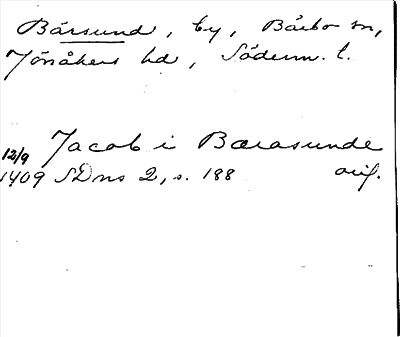 Bärsund, by, Bärbo sn,
Jönåkers hd, Söderm. l.
12/9 Jacob i Bærasunde
1409 SDns 2, s. 188 orig.